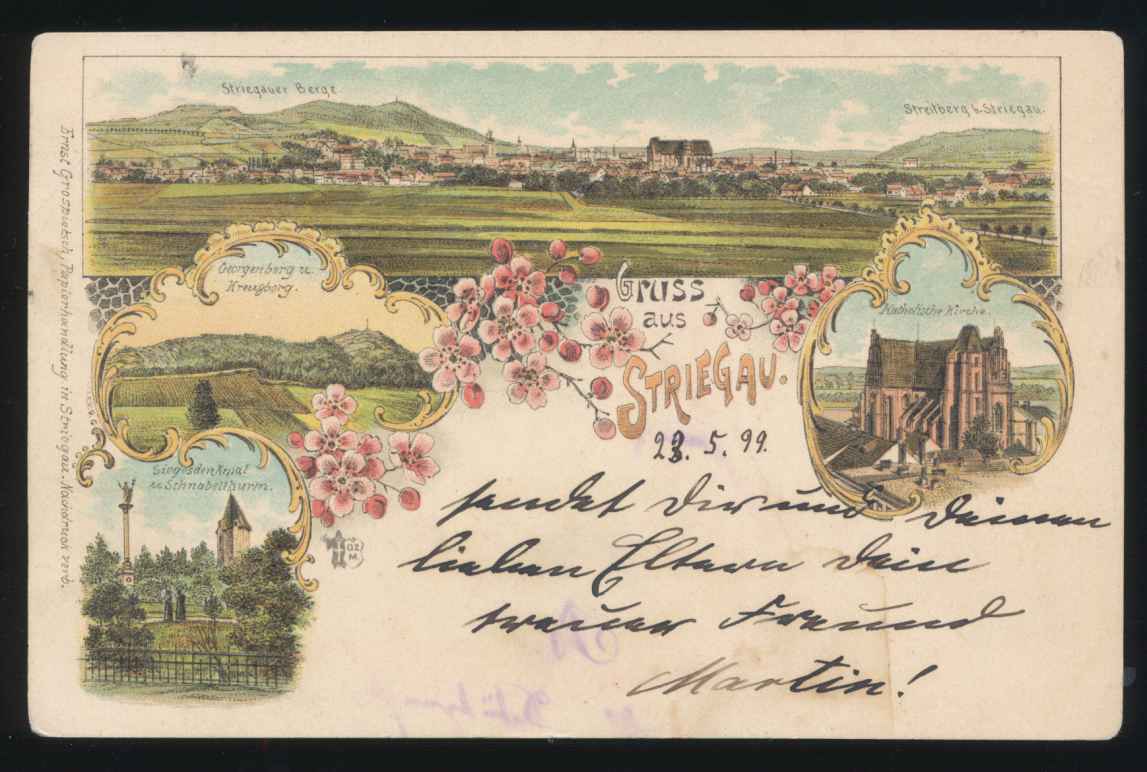 Striegauer Berge
Streitberg b. Striegau.
Ernst Grospietsch, Papierhandlung in Striegau. Nachdruck verb.
Georgenberg u.
Kreuzberg.
Gruss
aus
STRIEGAU.
Katholische Kirche.
Siegesdenkmal
u. Schnabelthurm.
23. 5. 99.
sendet Dir und Deinen
lieben Eltern Dein
treuer Freund
Martin!